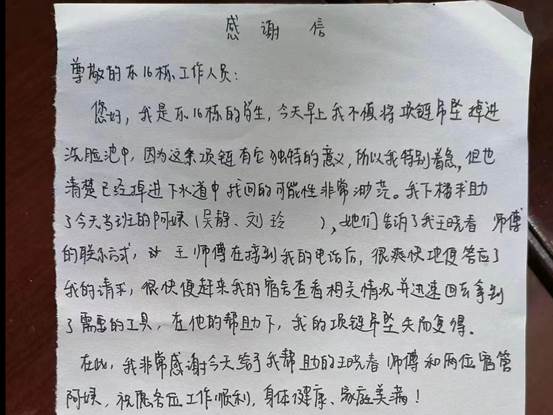 感谢信
尊敬的东16栋工作人员:
您好,我是东16栋的学生,今天早上我不慎将项链吊坠掉进
洗脸池中,因为这条项链有它独特的意义,所以我特别着急,但也
清楚已经掉进下水道中找回的可能性非常渺茫。我下楼求助
了今天当班的阿姨(吴静、刘玲 ),她们告诉了我王晓春 师傅
的联系方式,王师傅在接到我的电话后,很爽快地便答应了
我的请求,很快便赶来我的宿舍查看相关情况并迅速回去拿到
了需要的工具,在他的帮助下,我的项链吊坠失而复得。
在此,我非常感谢今天给了我帮助的王晓春 师傅和两位宿管
阿姨,祝愿各位工作顺利,身体健康、家庭美满!